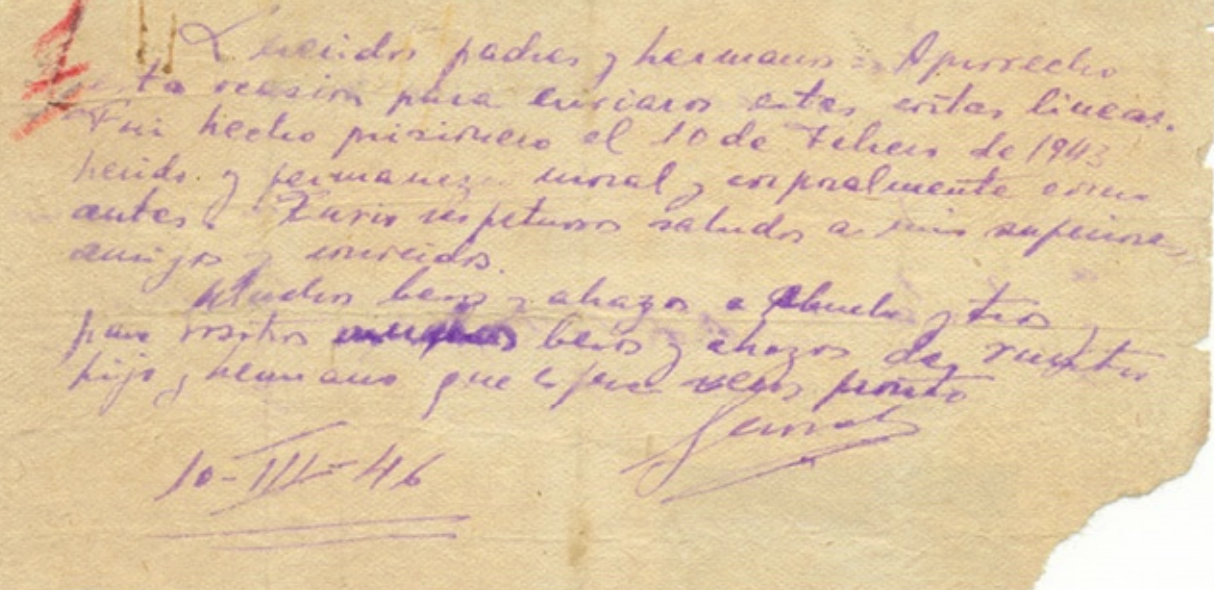 Queridos padres y hermanos = Aprovecho
esta ocasión para enviaros estas cortas lineas.
Fui hecho prisionero el 10 de Febrero de 1943
herido y permanezco moral y corporalmente como
antes. Envio respetuosos saludos a mis superiores,
amigos y conocidos.
Muchos besos y abrazos a abuela y tios y
para vosotros muchos besos y abrazos de vuestro
hijo y hermano que espera veros pronto
10-III-46